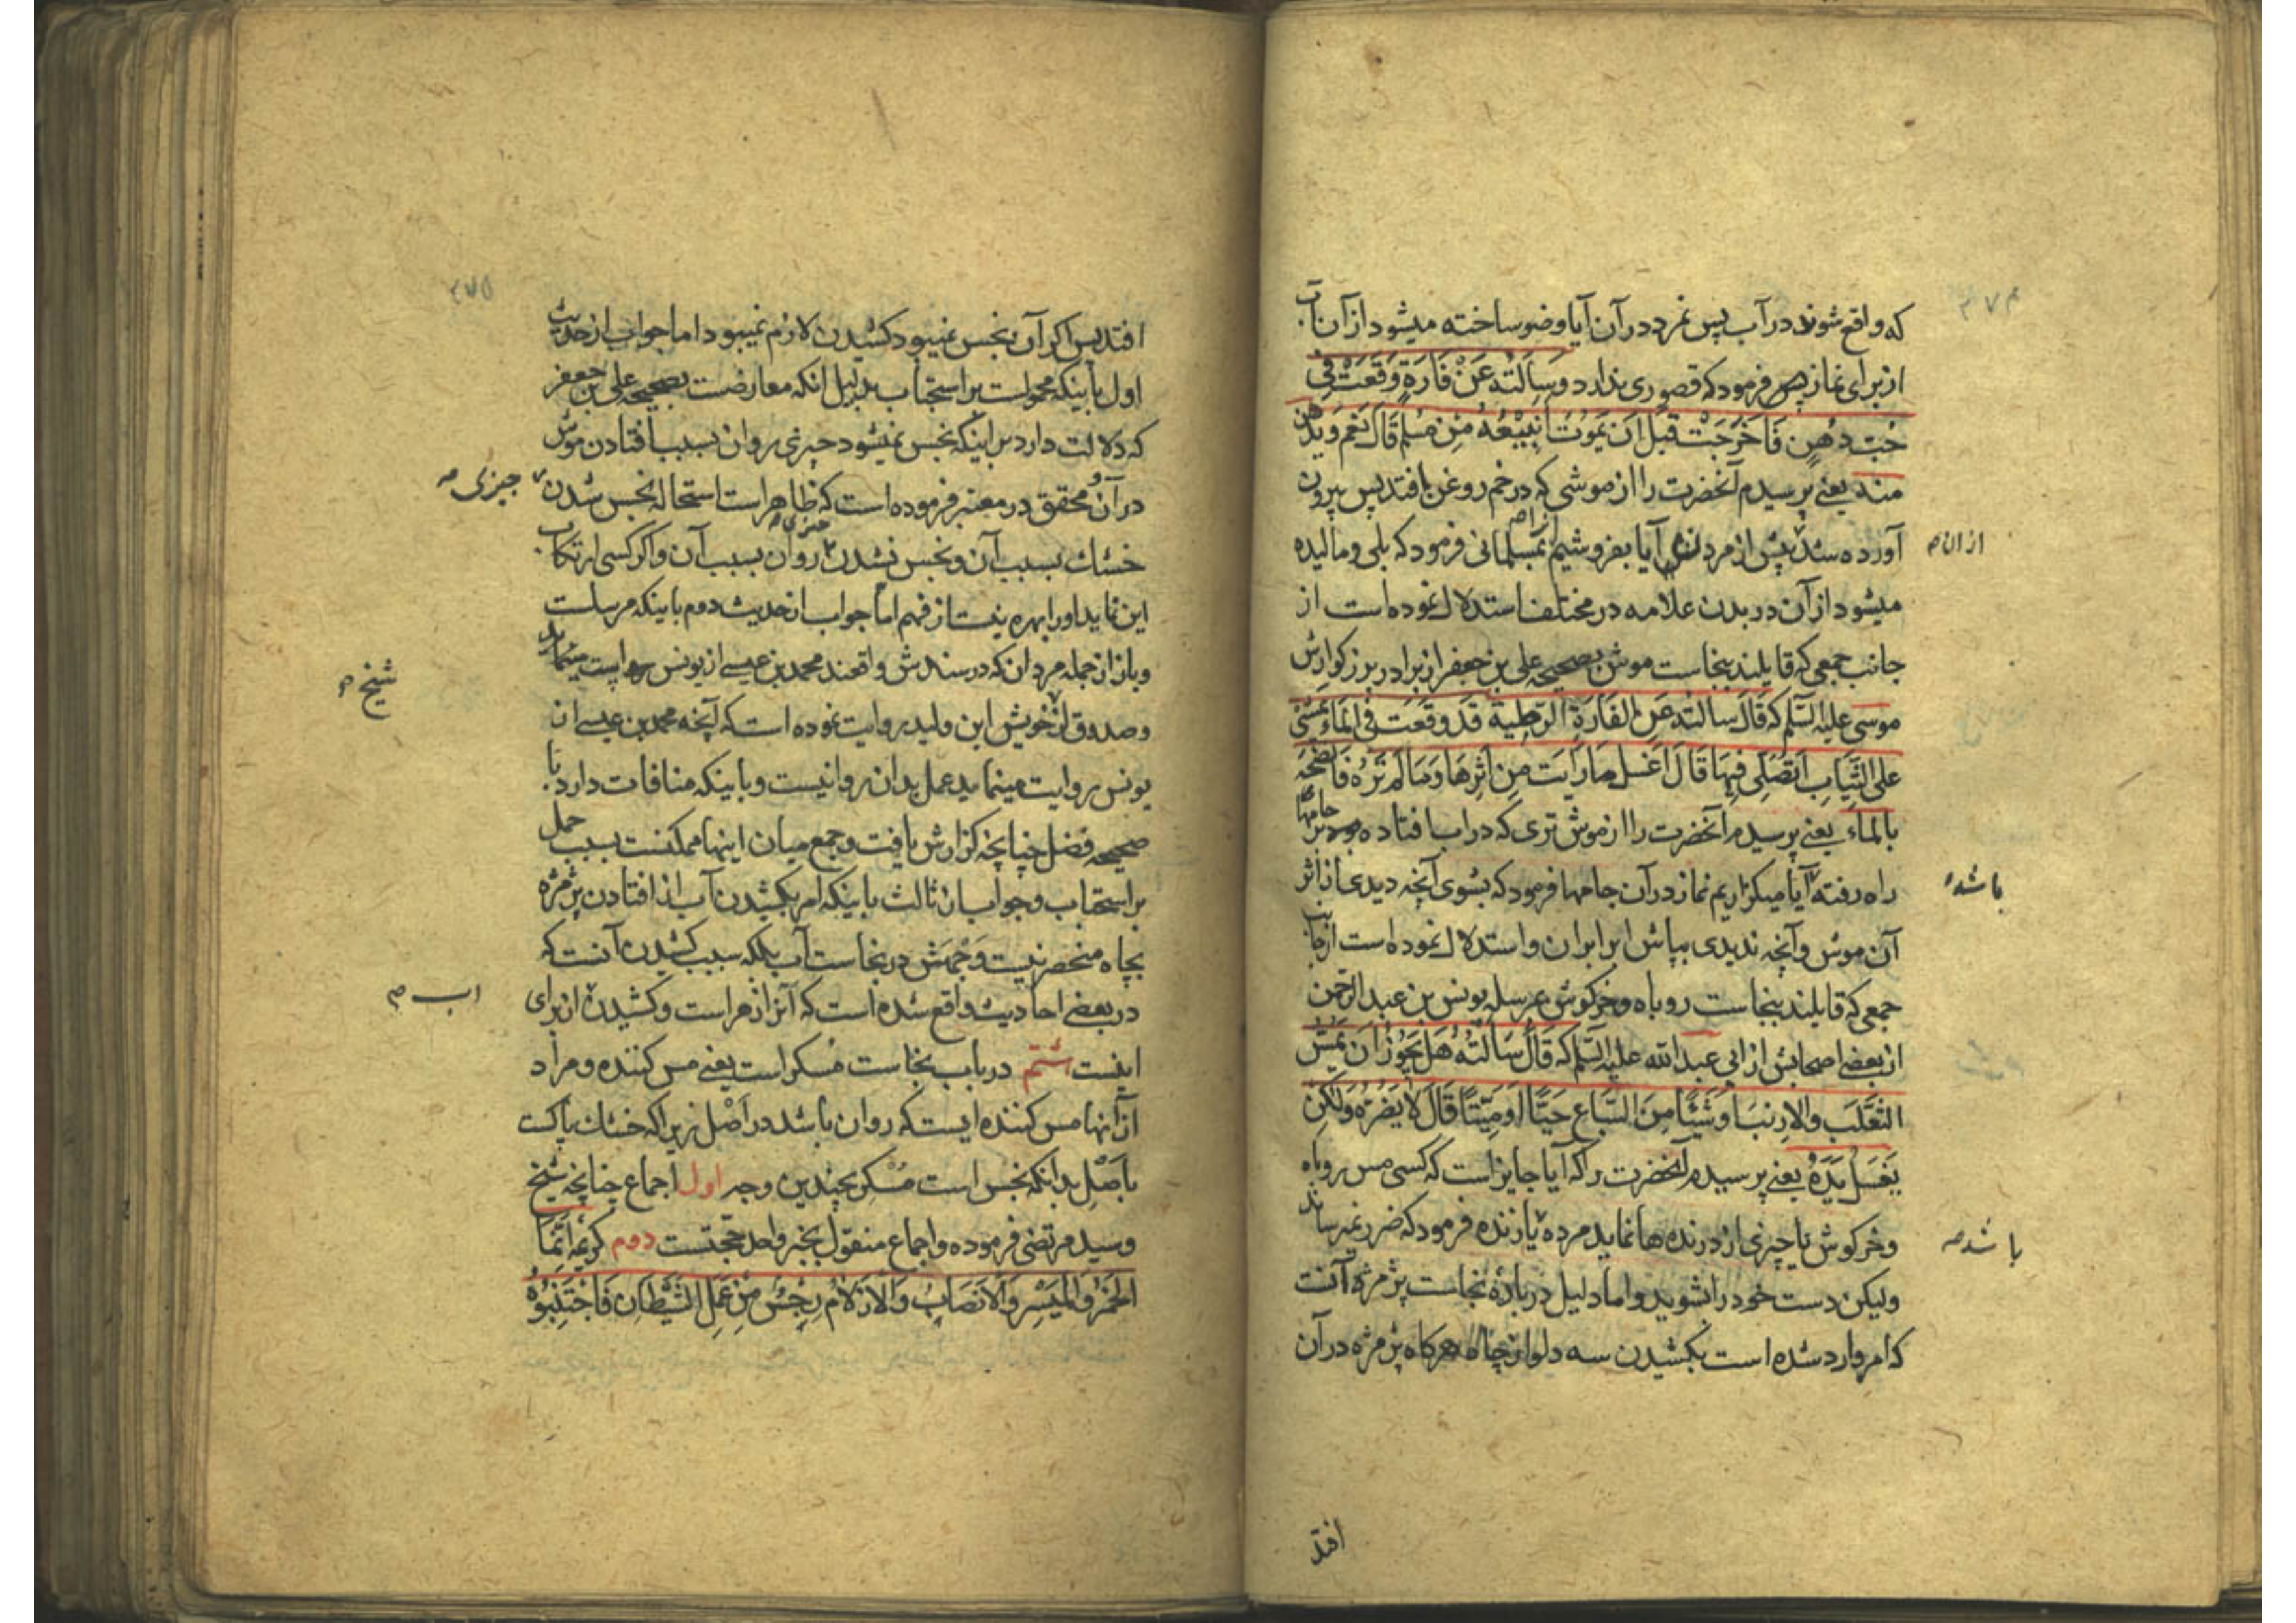 ۴۷۴
که واقع شوند در آب پس نمرد در آن آیا وضو ساخته میشود از آن آب
از برای نماز پس فرمود که قصوری ندارد وَسَاَلتُه عَنْ فَارَةٍ وَقَعَتْ فی
حُبّ دُهنٍ فَاَخرجَتْ قَبلَ اَن یَموُتَ اَنَبیْعُهُ مِنْ مُسلِم قَالَ نَعَم وَیدَّهن
منه یعنے پرسیدم آنحضرت را از موشی که در خم روغن بافتد پس بیرون
آورده شد پیش از مردن آیا بفروشیم انرا بمسلمانی فرمود که بلی و مالیده
از ان صح
میشود از آن در بدن علامه در مختلف استدلال نموده است از
جانب جمعی که قایلند بنجاست موش بصحیحه علی بن جعفر از برادر بزرکوارش
موسی علیه السّلم که قَالَ سَالتُه عَنِ الفَارَةِ الرّطبة قَد وقَعَت فی المَاءِ تمشی
علی الثّیابِ اَتصَلّی فِیهَا قَالَ اغسل مَا رَاَیتَ مِن اثرِهَا وَمَا لَم تَرَهُ فَانضحَه
بالماءِ یعنے پرسیدم آنحضرت را از موش تری که در اب افتاده بر جامها
راه رفته آیا میکزاریم نماز در آن جامها فرمود که بشوی آنچه دیدی از اثر
باشد
آن موش و آنچه ندیدی بپاش ابرا بران و استدلال نموده است از جانب
جمعی که قایلند بنجاست روباه و خرکوش بمرسله یونس بن عبد الرّحمن
از بعضے اصحابش از ابی عبد الله علیه السّلم که قَالَ سَاَلتُهُ هَل یَجُوزُ اَن یَمسّ
الثّعلَب وَالاَرنبَ اَو شَیئًا مِنَ السّباعِ حَیّاً اَو مَیّتًا قَالَ لا یَضُرّهُ وَلکِن
یَغسل یَدَهُ یعنے پرسیدم آنحضرت را که آیا جایز است که کسی مس روباه
و خرکوش یا چیزی از درنده ها نماید مرده یا زنده فرمود که ضرر نمیرساند
باشد صح
ولیکن دست خود را بشوید و اما دلیل در بارهٔ نجاست پژمژه آنست
که امر وارد شده است بکشیدن سه دلو از چاه هرکاه پژمژه در آن
افتد
۴۷۵
افتد پس اکر آن نجس نمیبود کشیدن لازم نمیبود اما جواب از حدیث
اول باینکه محمولست بر استحباب بدلیل انکه معارضست بصحیحه علی بن جعفر
که دلالت دارد بر اینکه نجس نمیشود چیزی روان بسبب افتادن موش
در آن و محقق در معتبر فرموده است که ظاهر است استحاله نجس شدن
چیزی صح
خشک بسبب آن و نجس نشدن چیزی روان بسبب آن و اکر کسی ارتکاب
این نماید او را بهره نیست از فهم اما جواب از حدیث دوم باینکه مرسلست
و باز از جمله مردان که در سندش واقعند محمد بن عیسے از یونس روایت مینماید
و صدوق از خویش ابن ولید روایت نموده است که آنچه محمد بن عیسے از
شیخ صح
یونس روایت مینماید عمل بدان روا نیست و باینکه منافات دارد با
صحیحه فضل چنانچه کزارش یافت و جمع میان اینها ممکنست بسبب حمل
بر استحباب و جواب از ثالث باینکه امر بکشیدن آب از افتادن پژمژه
بچاه منحصر نیست وَجهَش در نجاست آب بلکه سبب کشیدن آنست که
در بعضے احادیث واقع شده است که آنرا زهر است و کشیدن از برای
اب صح
اینست شتم در باب نجاست مُسکر است یعنے مس کننده و مراد
از آنها مس کننده ایست که روان باشد در اَصْل زیرا که خشک پاکست
باَصْل بدانکه نجس است مُسْکِر بچندین وجه اول اجماع چنانچه شیخ
و سید مرتضی فرموده و اجماع منقول بخبر واحد حجتست دوم کریمهٔ اِنّمَا
الخَمرُ وَالمَیسِر وَالاَنصَابُ وَالاَزلامُ رِجسٌ مِنْ عَمَلِ الشّیْطَانِ فَاجْتَنِبُوُهُ